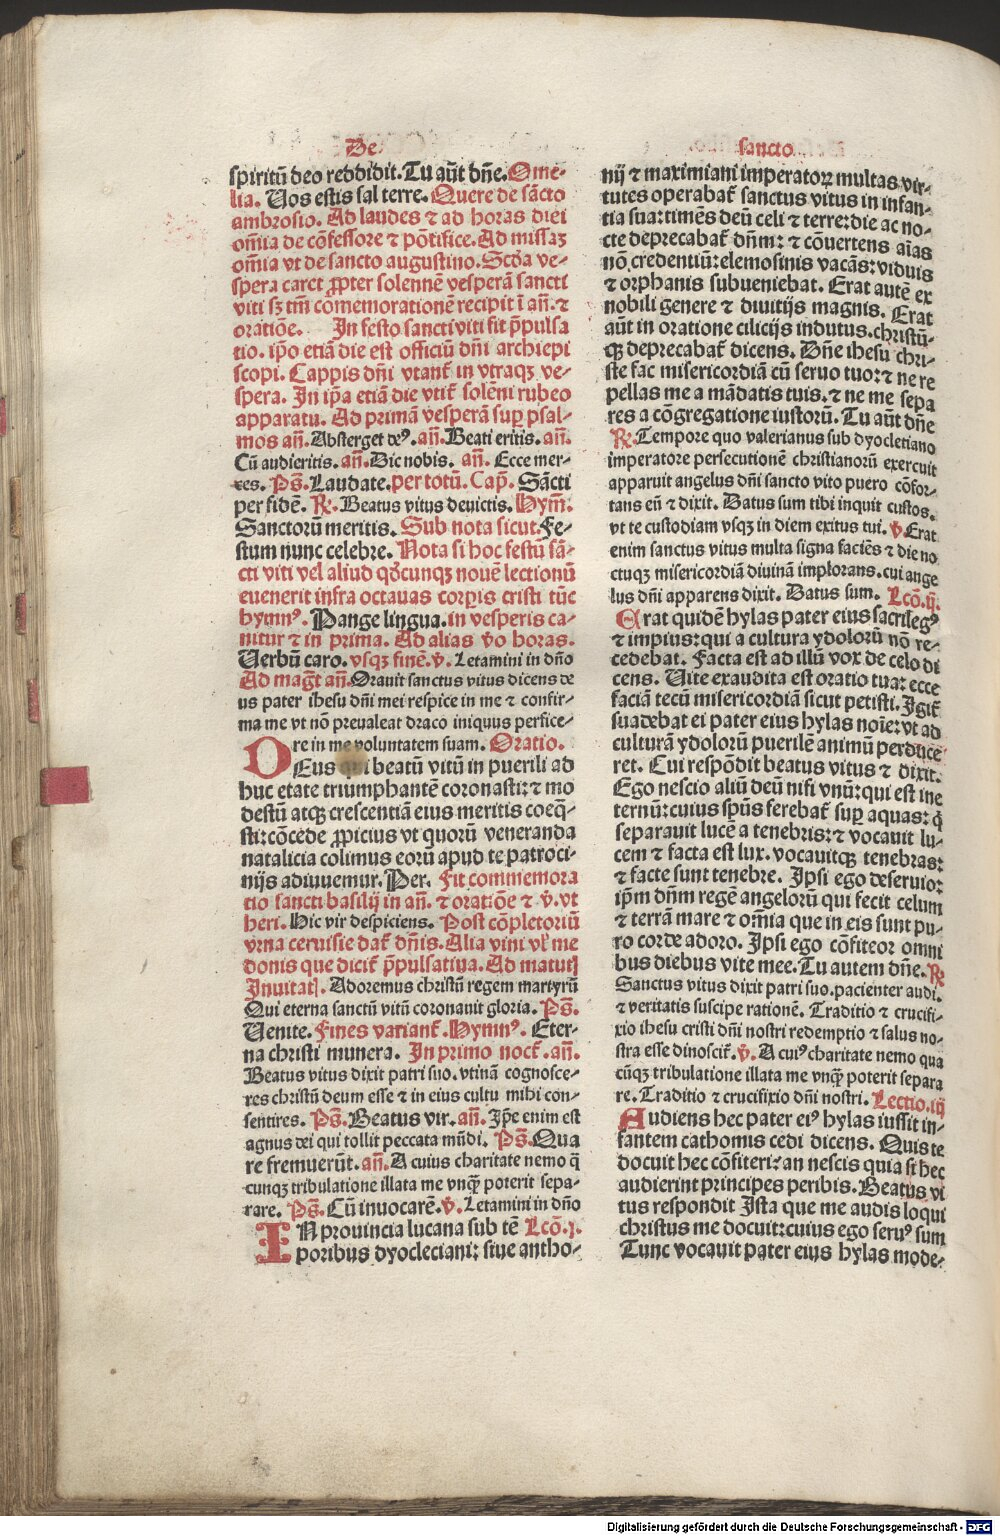 De
spiritū deo reddidit. Tu aūt dn̄e. Ome-
lia. Uos estis sal terre. Quere de sācto
ambrosio. Ad laudes ⁊ ad horas diei
om̄ia de cōfessore ⁊ pōtifice. Ad missaꝫ
om̄ia vt de sancto augustino. Scd̄a ve-
spera caret ꝓpter solennē vesperā sancti
viti sꝫ tm̄ cōmemorationē recipit ī an̄. ⁊
oratiōe. In festo sancti viti fit p̄pulsa
tio. ip̄o etiā die est officiū dn̄i archiepi
scopi. Cappis dn̄i vtant᷑ in vtraqꝫ ve-
spera. In ip̄a etiā die vtit᷑ solēni rubeo
apparatu. Ad primā vesperā suꝑ psal-
mos an̄. Absterget deꝰ. an̄. Beati eritis. an̄.
Cū audieritis. an̄. Dic nobis. an̄. Ecce mer-
ces. Ps̄. Laudate. per totū. Cap̄. Sācti
per fidē. ℟. Beatus vitus deuictis. Hym̄.
Sanctorū meritis. Sub nota sicut. Fe-
stum nunc celebre. Nota si hoc festū sā-
cti viti vel aliud qōcunqꝫ nouē lectionū
euenerit infra octauas corꝑis cristi tūc
hymnꝰ. Pange lingua. in vesperis ca-
nitur ⁊ in prima. Ad alias ṽo horas.
Uerbū caro. vsqꝫ finē. ℣. Letamini in dn̄o
Ad magt̄ an̄. Orauit sanctus vitus dicens de
us pater ihesu dn̄i mei respice in me ⁊ confir-
ma me vt nō preualeat draco iniquus perfice-
re in me voluntatem suam. Oratio.
DEus qui beatū vitū in puerili ad
huc etate triumphantē coronasti: ⁊ mo
destū atqꝫ crescentiā eius meritis coeq̄-
sti: cōcede ꝓpicius vt quorū veneranda
natalicia colimus eorū apud te patroci-
nijs adiuuemur. Per. Fit commemora
tio sancti basilij in an̄. ⁊ oratiōe ⁊ ℣. vt
heri. Hic vir despiciens. Post cōpletoriū
vrna ceruisie dat᷑ dn̄is. Alia vini vl̓ me
donis que dicit᷑ p̄pulsatiua. Ad matutꝭ
Inuitatꝭ. Adoremus christū regem martyrū
Qui eterna sanctū vitū coronauit gloria. Ps̄.
Uenite. Fines variant᷑. Hymnꝰ. Eter-
na christi munera. In primo noct᷑. an̄.
Beatus vitus dixit patri suo. vtinā cognosce-
res christū deum esse ⁊ in eius cultu mihi con-
sentires. Ps̄. Beatus vir. an̄. Ip̄e enim est
agnus dei qui tollit peccata mūdi. Ps̄. Qua
re fremuerūt. an̄. A cuius charitate nemo q̄
cunqꝫ tribulatione illata me vnqꝫ poterit sepa-
rare. Ps̄. Cū inuocarē. ℣. Letamini in dn̄o
IN prouincia lucana sub tē Lcō. j.
poribus dyocleciani: siue antho-
sancto
nij ⁊ maximiani imperatoꝝ multas vir-
tutes operabat᷑ sanctus vitus in infan-
tia sua: timēs deū celi ⁊ terre: die ac no-
cte deprecabat᷑ dn̄m: ⁊ cōuertens aīas
nō credentiū: elemosinis vacās: viduis
⁊ orphanis subueniebat. Erat autē ex
nobili genere ⁊ diuitijs magnis. Erat
aūt in oratione cilicijs indutus. christū-
qꝫ deprecabat᷑ dicens. Dn̄e ihesu chri-
ste fac misericordiā cū seruo tuo: ⁊ ne re
pellas me a mādatis tuis. ⁊ ne me sepa
res a cōgregatione iustorū. Tu aūt dn̄e
℟. Tempore quo valerianus sub dyocletiano
imperatore persecutionē christianorū exercuit
apparuit angelus dn̄i sancto vito puero cōfor-
tans eū ⁊ dixit. Datus sum tibi inquit custos.
vt te custodiam vsqꝫ in diem exitus tui. ℣. Erat
enim sanctus vitus multa signa faciēs ⁊ die no
ctuqꝫ misericordiā diuinā implorans. cui ange
lus dn̄i apparens dixit. Datus sum. Lcō. ij.
Erat quidē hylas pater eius sacrilegꝰ
⁊ impius: qui a cultura ydolorū nō re-
cedebat. Facta est ad illū vox de celo di
cens. Uite exaudita est oratio tua: ecce
faciā tecū misericordiā sicut petisti. Igit᷑
suadebat ei pater eius hylas noīe: vt ad
culturā ydolorū puerilē animū perduce
ret. Cui respōdit beatus vitus ⁊ dixit.
Ego nescio aliū deū nisi vnū: qui est ine
ternū: cuius sp̄us ferebat᷑ suꝑ aquas: q̄
separauit lucē a tenebris: ⁊ vocauit lu-
cem ⁊ facta est lux. vocauitqꝫ tenebras:
⁊ facte sunt tenebre. Ipsi ego deseruio:
ip̄m dn̄m regē angelorū qui fecit celum
⁊ terrā mare ⁊ om̄ia que in eis sunt pu-
ro corde adoro. Ipsi ego cōfiteor omni
bus diebus vite mee. Tu autem dn̄e. ℟
Sanctus vitus dixit patri suo. pacienter audi.
⁊ veritatis suscipe rationē. Traditio ⁊ crucifi-
xio ihesu cristi dn̄i nostri redemptio ⁊ salus no-
stra esse dinoscit᷑. ℣. A cuiꝰ charitate nemo qua
cūqꝫ tribulatione illata me vnqꝫ poterit separa
re. Traditio ⁊ crucifixio dn̄i nostri. Lectio. iij
Audiens hec pater eiꝰ hylas iussit in-
fantem cathomis cedi dicens. Quis te
docuit hec cōfiteri: an nescis quia si hec
audierint principes peribis. Beatus vi
tus respondit Ista que me audis loqui
christus me docuit: cuius ego seruꝰ sum
Tunc vocauit pater eius hylas mode-
Digitalisierung gefördert durch die Deutsche Forschungsgemeinschaft - DFG